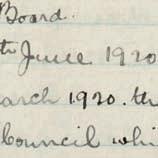 Board.
th June 1920
arch 1920. th
Council whi